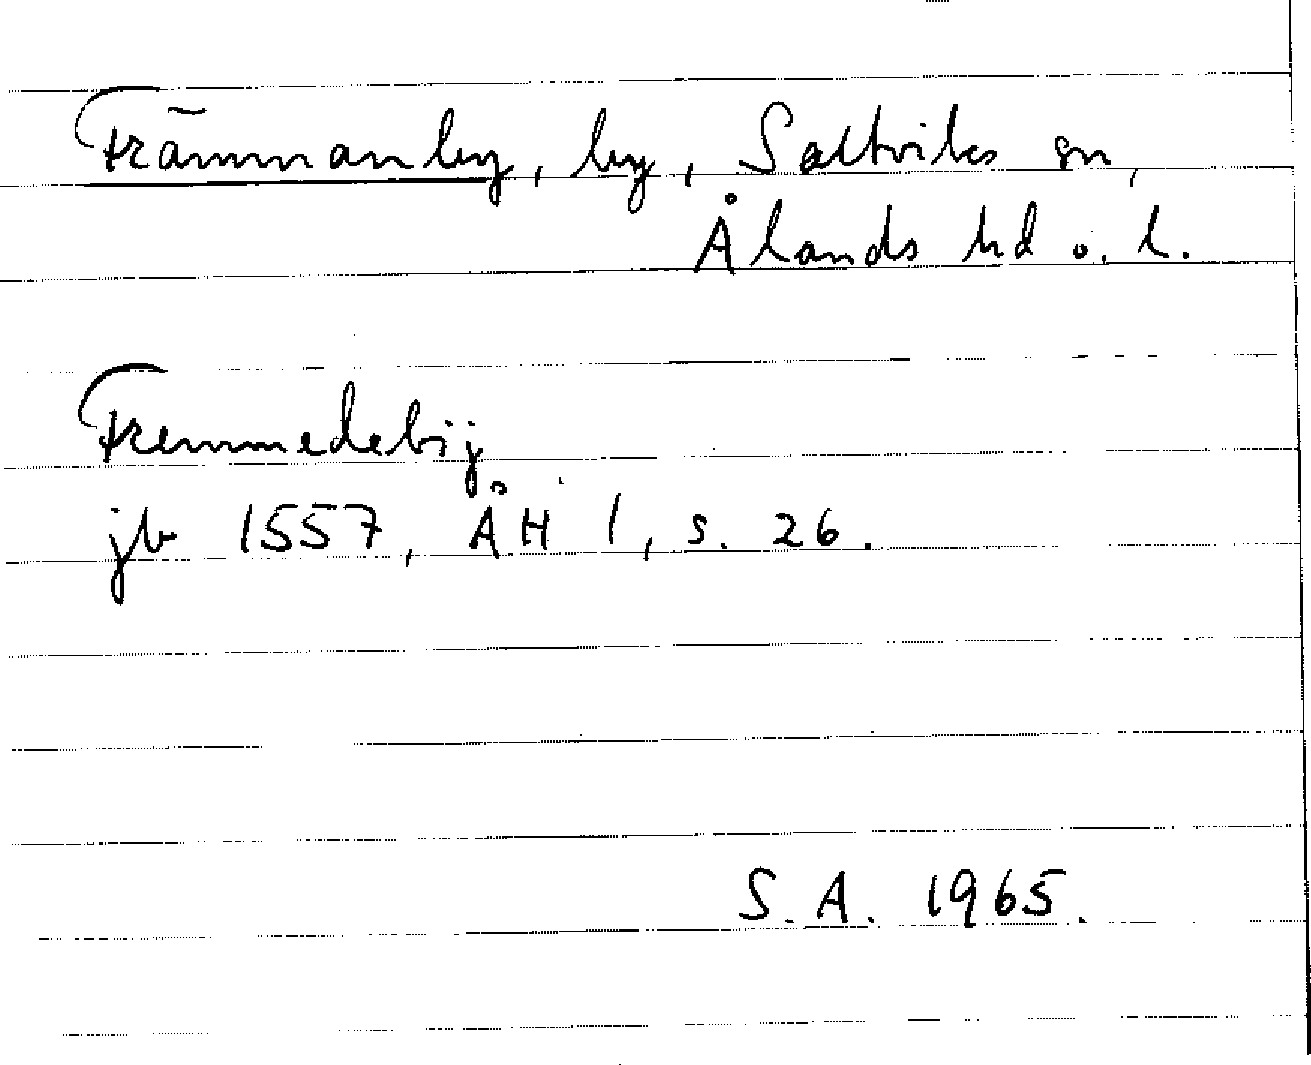 Främmanby, by, Saltviks sn,
Ålands hd o. l.
Fremmedebÿ
jb 1557, ÅH 1, s. 26.
S.A. 1965.